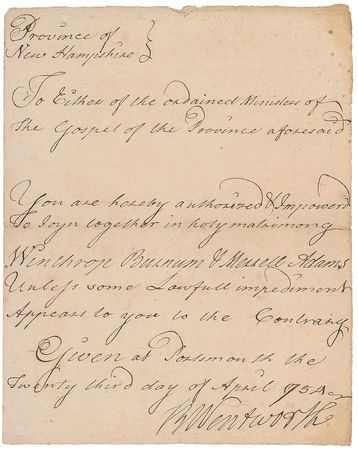 Province of
New Hampshire }
To Either of the ordained Ministers of
the Gospel of the Province aforesaid
You are hereby authorized & Impowerd
To Joyn together in holy matrimony
Winthrop Burnum & Adams
Unless some Lawfull impediment
Appears to you to the Contrary
Given at Portsmouth the
Twenty third day of April 1754
B Wentworth